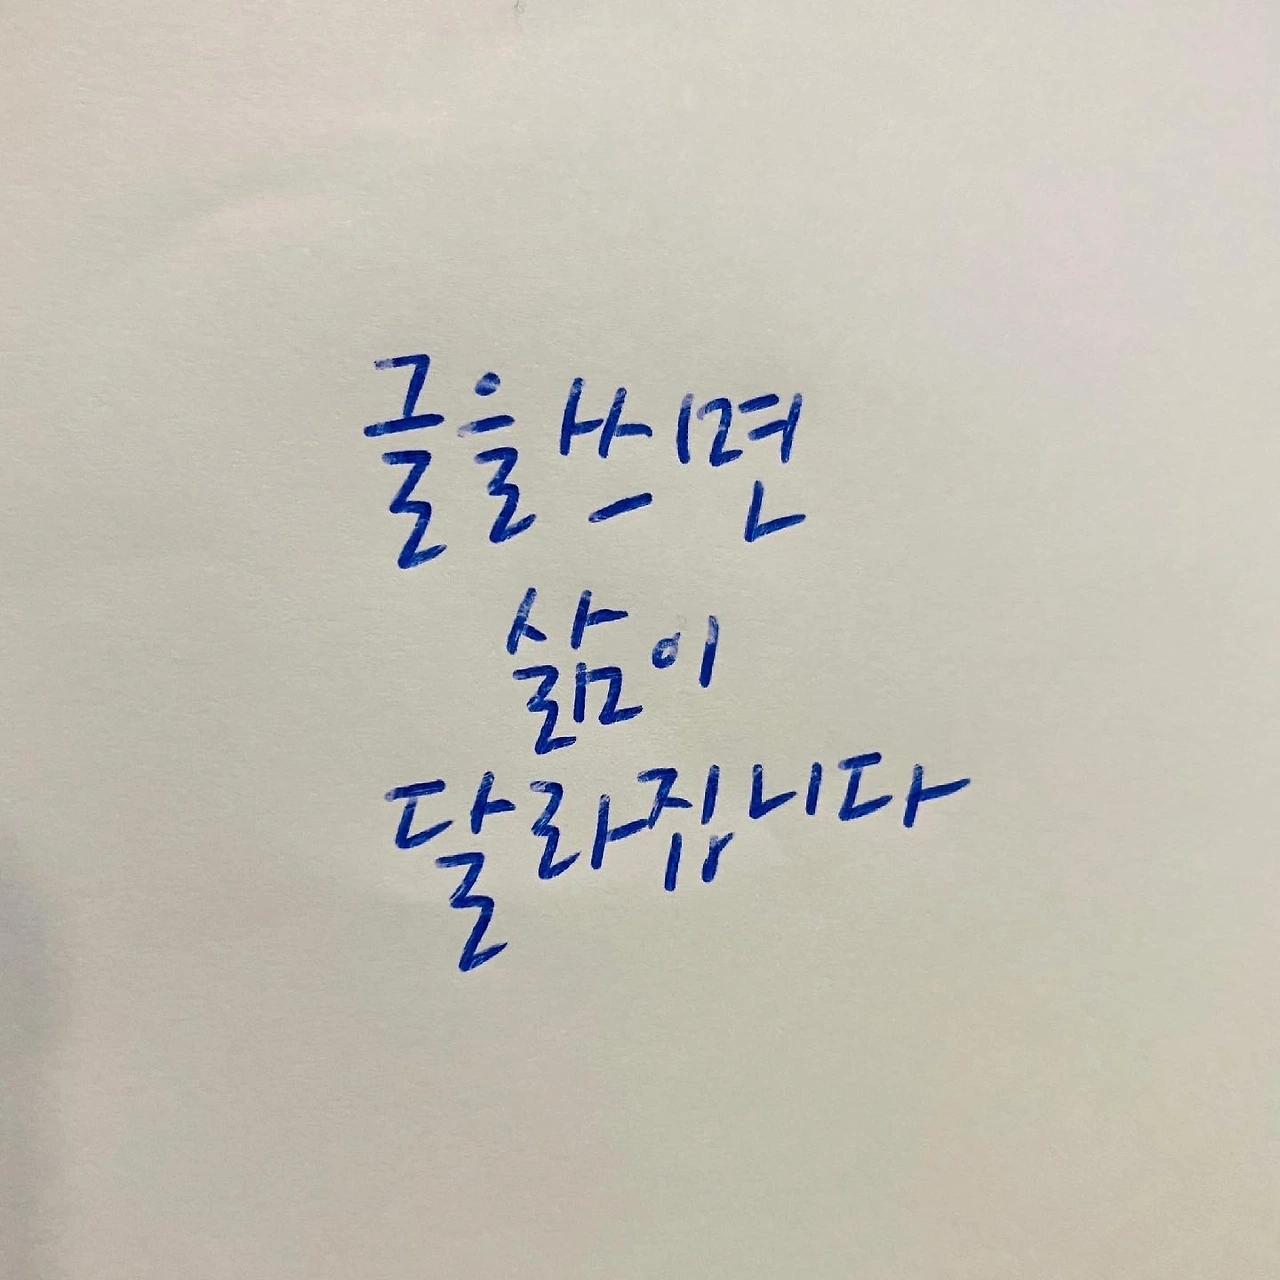 글을 쓰면
삶이
달라집니다